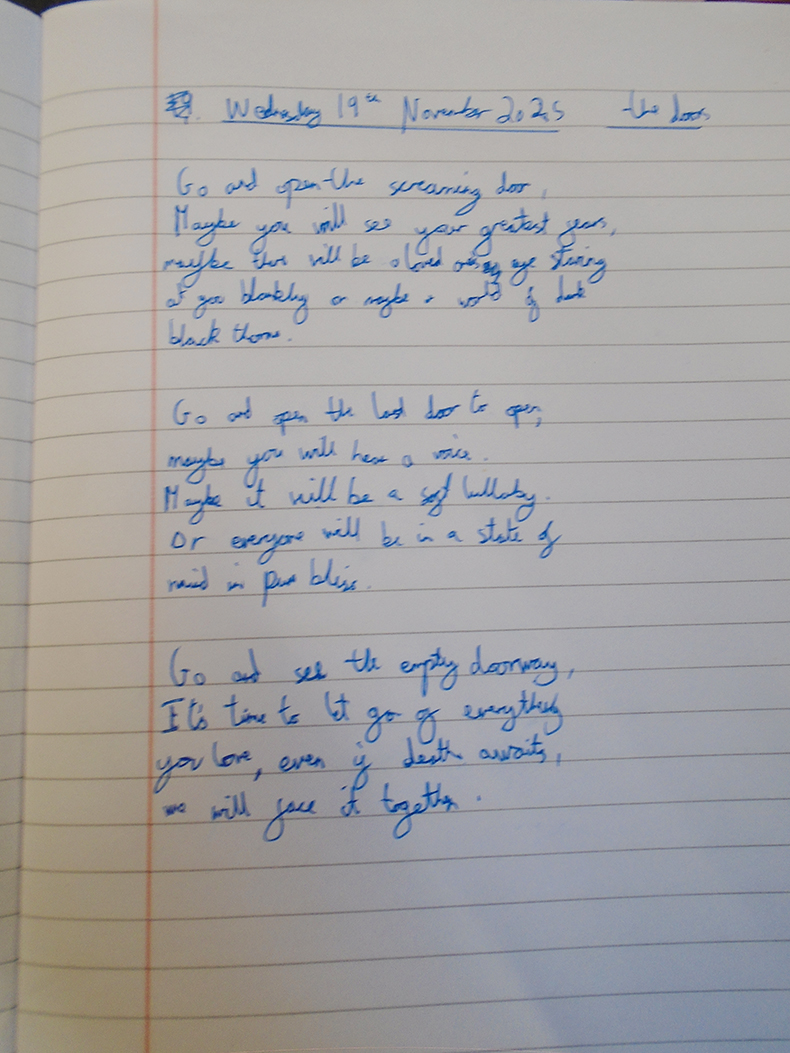 Wednesday 19th November 2025 the door
Go and open the screaming door,
Maybe you will see your greatest fears,
maybe there will be a eye staring
at you blankly or maybe a world of dark
black thorns.
Go and open the last door to open,
maybe you will hear a voice.
Maybe it will be a soft lullaby.
Or everyone will be in a state of
mind in pure bliss.
Go and see the empty doorway,
It's time to let go of everything
you love, even if death awaits,
we will face it together.